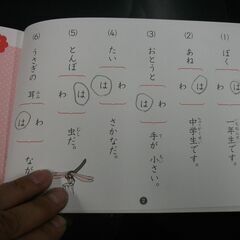 (1) ぼく は わ 一年生です。
(2) あね は わ 中学生です。
(3) おとうと は わ 手が小さい。
(4) たい は わ さかなだ。
(5) とんぼ は わ 虫だ。
(6) うさぎの耳 わ は なが
2